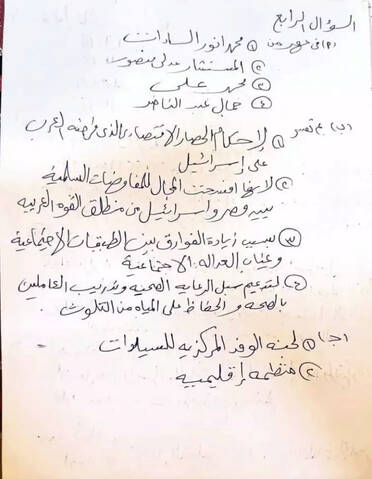 السؤال الرابع
(أ) في عهد من ① محمد أنور السادات
② المستشار عدلي منصور
③ محمد علي
④ جمال عبد الناصر
(ب) بم تفسر ① لإحكام الحصار الاقتصادي الذي فرضته العرب
على إسرائيل
② لأنها افسحت المجال للمفاوضات السلمية
بين مصر واسرائيل من منطلق القوه العربيه
③ بسبب زيادة الفوارق بين الطبقات الاجتماعية
وغياب العداله الاجتماعية
④ لتدعيم سبل الرعايه الصحيه وتدريب العاملين
بالصحه والحفاظ على المياه من التلوث
(ج) ① لجنه الوفد المركزيه للسيدات
② منظمه إقليميه